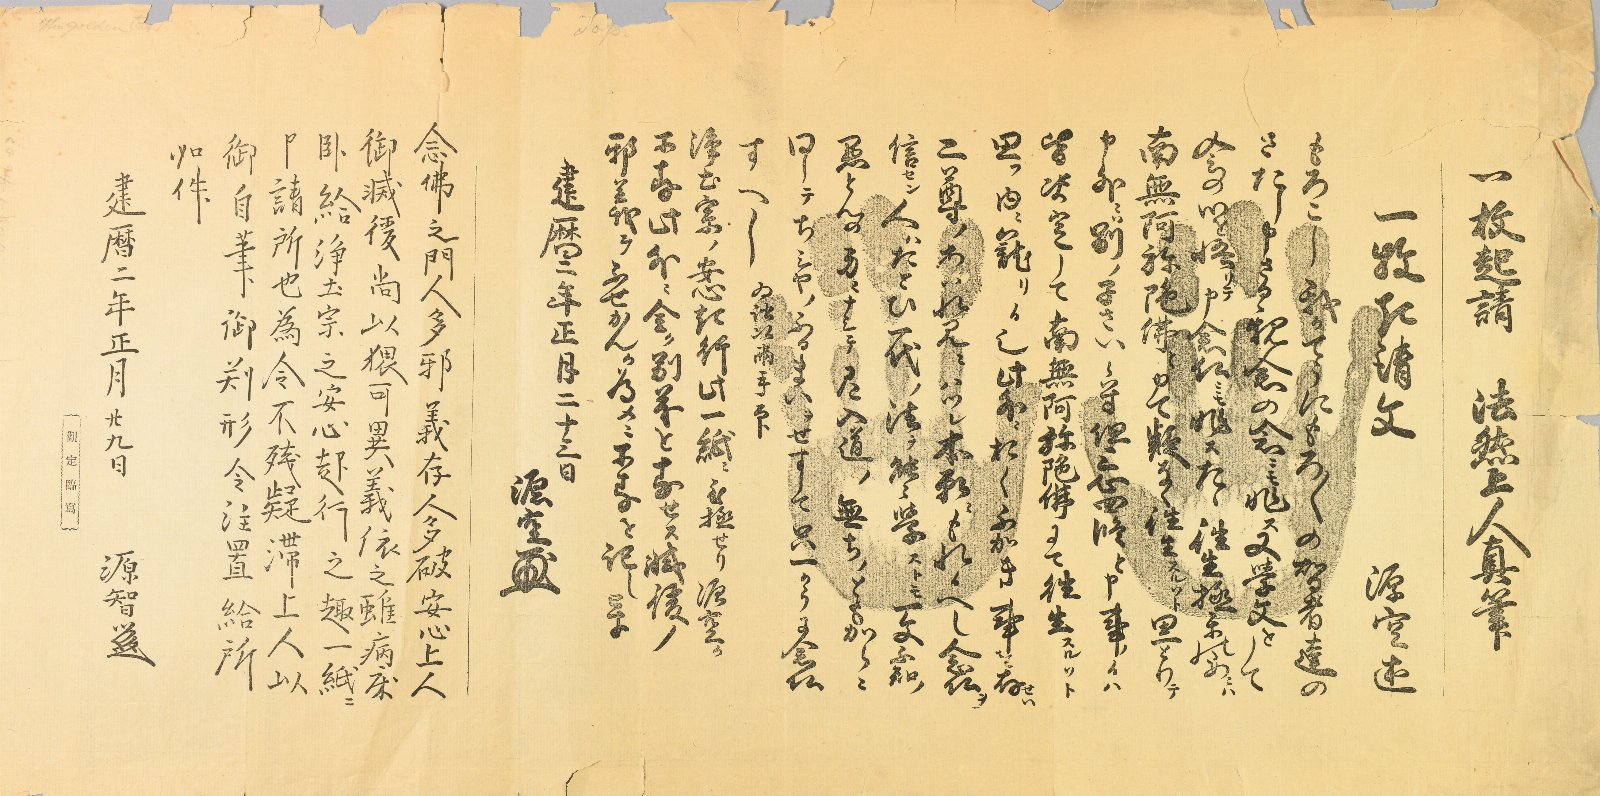 一枚起請　法然上人真筆
一枚起請文　源空述
もろこし我かてうにもろ〱の智者達の
さたし申さるゝ観念の念ニモ非ス又学文をして
念の心を悟リテ申念仏ニモ非スたゝ往生極楽の為ニハ
南無阿弥陀佛と申て疑なく往生スルソト思とりテ
申外ニハ別ノ子さい候ハす但三心四修と申事ノ候ハ
皆決定して南無阿弥陀佛にて往生スルソト
思フ内ニ籠リ候也此外ニおくふかき事を存せハ
二尊ノあハれみニハツレ本願ニもれ候へし念仏ヲ
信セン人ハたとひ一代ノ法ヲ能々学ストモ一文不知ノ
愚とんの身ニナシテ尼入道ノ無ちノともからニ
同シテちしやノふるまいヲせすして只一かうに念仏
すへし　為証以両手印
浄土宗ノ安心起行此一紙ニ至極せり源空カ
所存此外ニ全ク別義を存せス滅後ノ
邪義ヲふせかんか為メニ所存を記し畢
建暦二年正月二十三日
源空
念佛之門人多邪義存人多破安心上人
御滅後尚以猥可異義依之雖病床
臥給浄土宗之安心起行之趣一紙ニ
申請所也為令不残疑滞上人以
御自筆御判形令注置給所
如件
建暦二年正月廿九日　源智
観定臨寫
The golden
Top